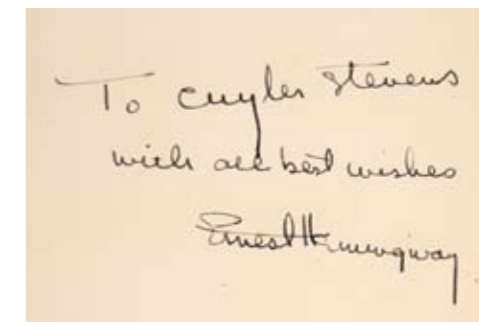 To Cuyler Stevens
with all best wishes
Ernest Hemingway